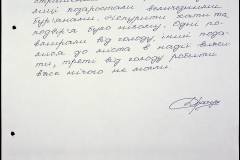 виці подаростали величезними
бур'янами. Чепурити хати та
подвір'я було нікому. Одні по-
вмирали від голоду, інші пода-
лися до міста в надії вижи-
ти, треті від голоду робити
вже нічого не могли